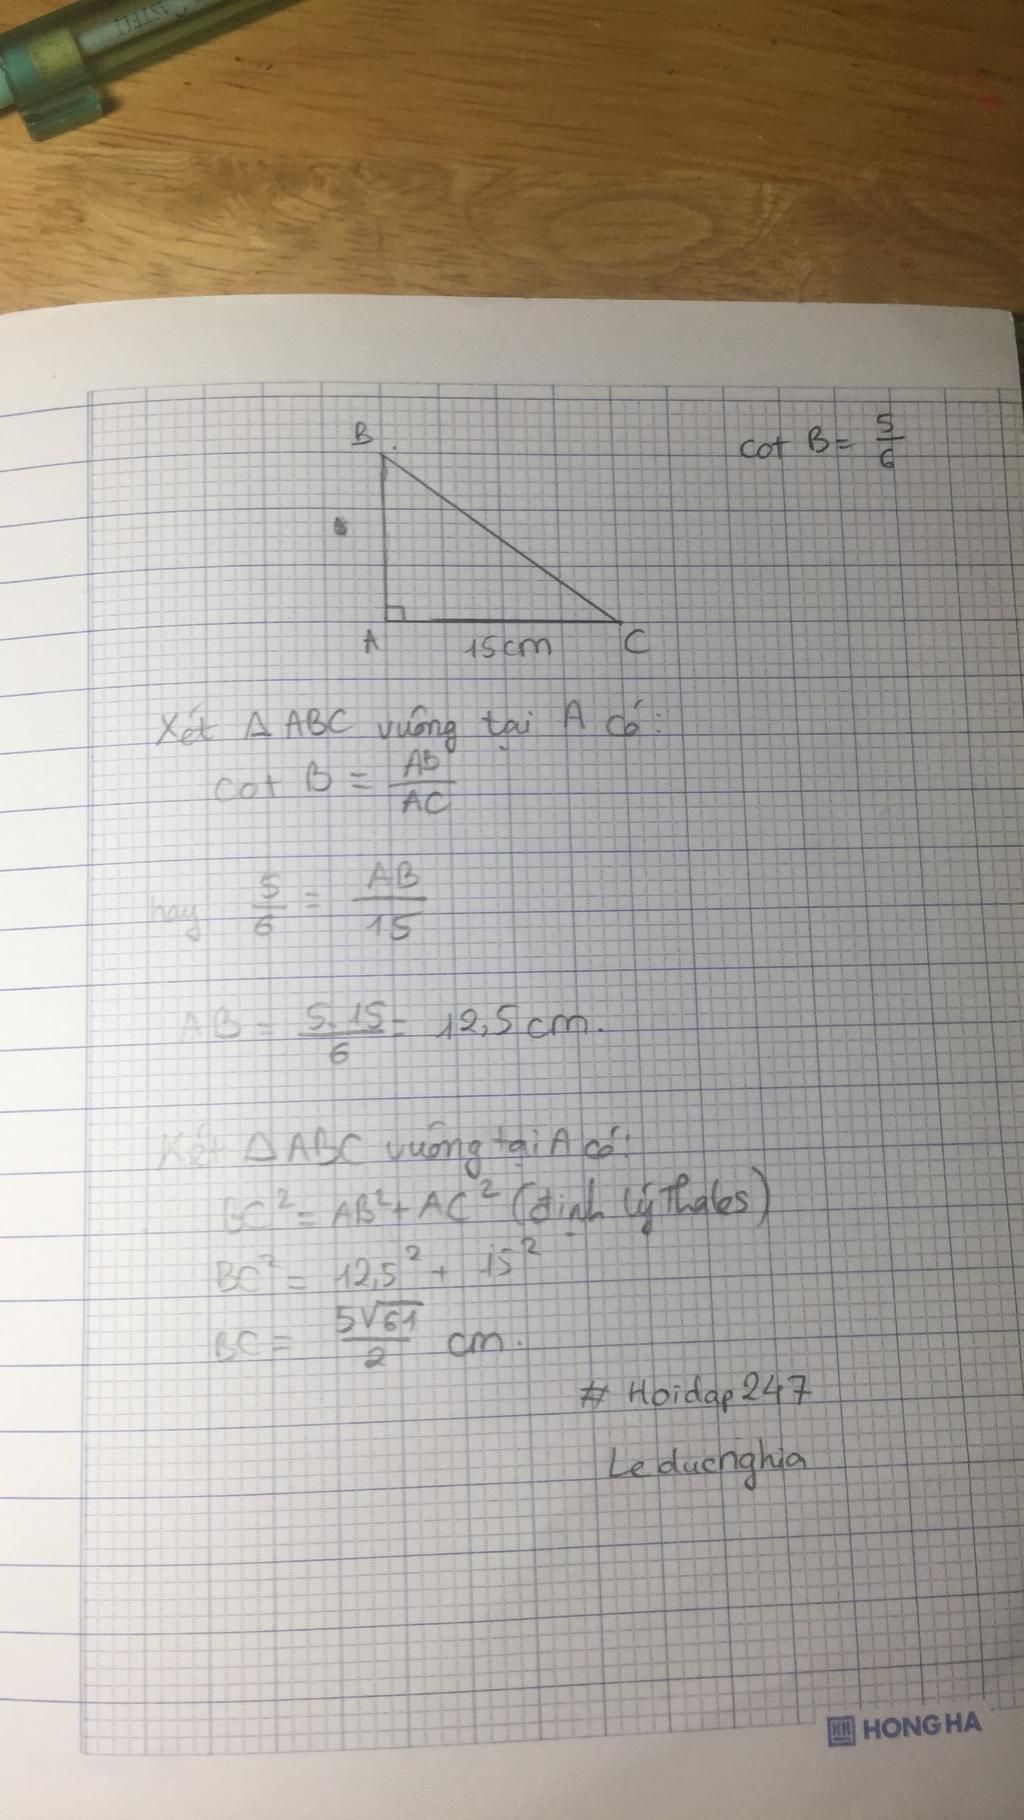 B
cot B = 5/6
A
15cm
C
Xét Δ ABC vuông tại A có:
cot B = AB/AC
hay 5/6 = AB/15
AB = 5.15/6 = 12,5 cm.
Xét Δ ABC vuông tại A có:
BC² = AB² + AC² (định lý Thales)
BC² = 12,5² + 15²
BC = 5√61/2 cm.
# Hoidap247
Leducnghia
HONG HA